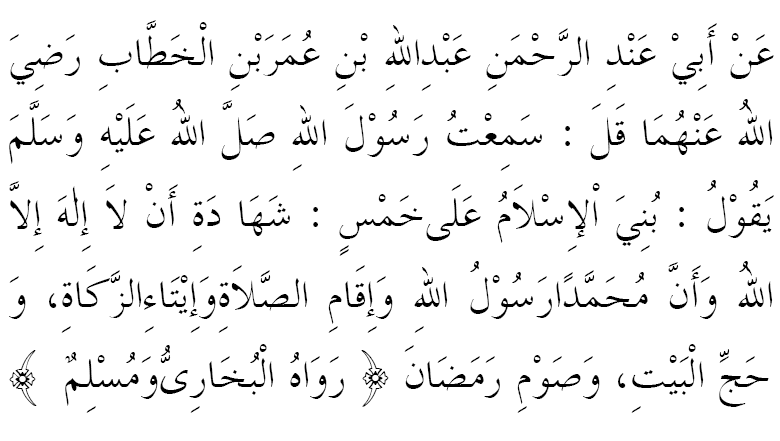 عَنْ أَبِيْ عَنْدِ الرَّحْمَنِ عَبْدِاللهِ بْنِ عُمَرَبْنِ الْخَطَّابِ رَضِيَ
اللهُ عَنْهُمَا قَلَ : سَمِعْتُ رَسُوْلَ اللهِ صَلَّ اللهُ عَلَيْهِ وَسَلَّمَ
يَقُوْلُ : بُنِيَ اْلإِسْلَامُ عَلَى خَمْسٍ : شَهَا دَةِ أَنْ لاَ إِلهَ إِلاَّ
اللهُ وَأَنَّ مُحَمَّدًارَسُوْلُ اللهِ وَإِقَامِ الصَّلاَةِوَإِيْتَاءِالزَّكَاةِ، وَ
حَجِّ الْبَيْتِ، وَصَوْمِ رَمَضَانَ ﴿ رَوَاهُ الْبُخَارِىُّوَمُسْلِمٌ ﴾